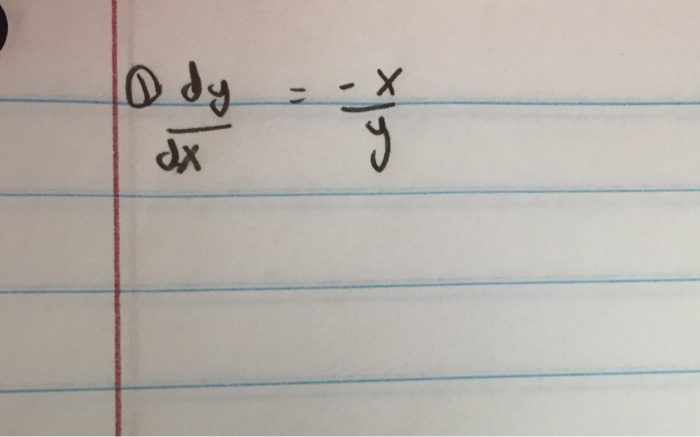 ① dy/dx = -x/y